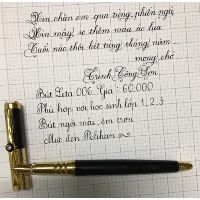 Xin chân em qua từng phiến ngà
Xin mây se thêm màu áo lụa
Tuổi nào thôi hết từng tháng năm
mong chờ
Trịnh Công Sơn
Bút Leta 006. Giá: 60.000
Phù hợp với học sinh lớp 1,2,3
Bút ngòi mài, êm trơn
Mực đen Pelikan